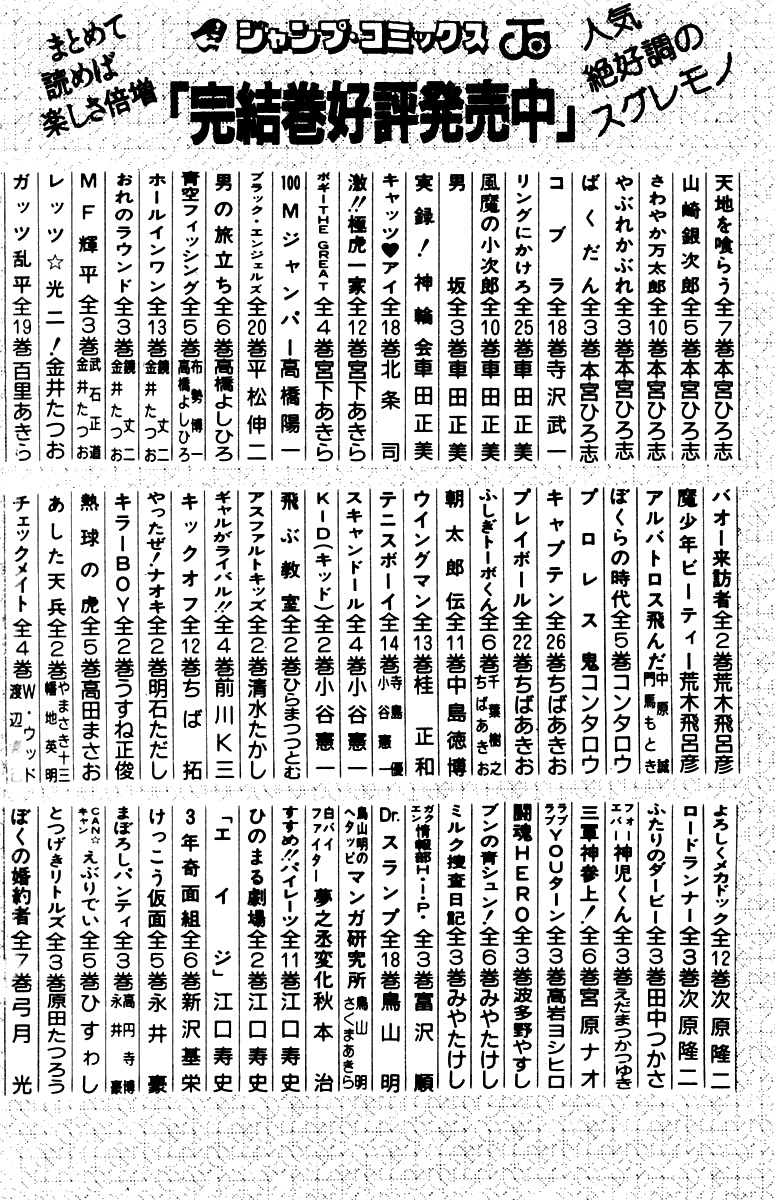 まとめて
読めば
楽しさ倍増
ジャンプ・コミックス
人気
絶好調の
スグレモノ
「完結巻好評発売中」
天地を喰らう全7巻本宮ひろ志
山崎銀次郎全5巻本宮ひろ志
さわやか万太郎全10巻本宮ひろ志
やぶれかぶれ全3巻本宮ひろ志
ばくだん全3巻本宮ひろ志
コブラ全18巻寺沢武一
リングにかけろ全25巻車田正美
風魔の小次郎全10巻車田正美
男坂全3巻車田正美
実録!神輪会車田正美
キャッツ♥アイ全18巻北条司
激!!極虎一家全12巻宮下あきら
ボギーTHE GREAT全4巻宮下あきら
100Mジャンパー高橋陽一
ブラック・エンジェルズ全20巻平松伸二
男の旅立ち全6巻高橋よしひろ
青空フィッシング全5巻布勢博一 高橋よしひろ
ホールインワン全13巻鏡丈二 金井たつお
おれのラウンド全3巻鏡丈二 金井たつお
MF輝平全3巻武石正道 金井たつお
レッツ☆光二!金井たつお
ガッツ乱平全19巻百里あきら
バオー来訪者全2巻荒木飛呂彦
魔少年ビーティー荒木飛呂彦
アルバトロス飛んだ中原誠 門馬もとき
ぼくらの時代全5巻コンタロウ
プロレス鬼コンタロウ
キャプテン全26巻ちばあきお
プレイボール全22巻ちばあきお
ふしぎトーボくん全6巻千葉樹之 ちばあきお
朝太郎伝全11巻中島徳博
ウイングマン全13巻桂正和
テニスボーイ全14巻寺島優 小谷憲一
スキャンドール全4巻小谷憲一
KID(キッド)全2巻小谷憲一
飛ぶ教室全2巻ひらまつつとむ
アスファルトキッズ全2巻清水たかし
ギャルがライバル!!全4巻前川K三
キックオフ全12巻ちば拓
やったぜ!ナオキ全2巻明石ただし
キラーBOY全2巻うすね正俊
熱球の虎全5巻高田まさお
あした天兵全2巻やまさき十三 幡地英明
チェックメイト全4巻W・ウッド 渡辺
よろしくメカドック全12巻次原隆二
ロードランナー全3巻次原隆二
ふたりのダービー全3巻田中つかさ
フォーエバー神児くん全3巻えだまつかつゆき
三軍神参上!全6巻宮原ナオ
ラブラブYOUターン全3巻高岩ヨシヒロ
闘魂HERO全3巻波多野やすし
ブンの青シュン!全6巻みやたけし
ミルク捜査日記全3巻みやたけし
ガクエン情報部H・I・P・全3巻富沢順
Dr.スランプ全18巻鳥山明
鳥山明のヘタッピマンガ研究所鳥山明 さくまあきら
白バイファイター夢之丞変化秋本治
すすめ!!パイレーツ全11巻江口寿史
ひのまる劇場全2巻江口寿史
「エイジ」江口寿史
3年奇面組全6巻新沢基栄
けっこう仮面全5巻永井豪
まぼろしパンティ全3巻高円寺博 永井豪
CAN☆キャンえぶりでい全5巻ひすゎし
とつげきリトルズ全3巻原田たつろう
ぼくの婚約者全7巻弓月光